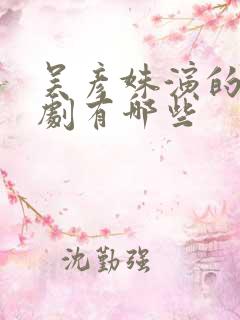 吴彦姝演的
劇有哪些
沈勤强